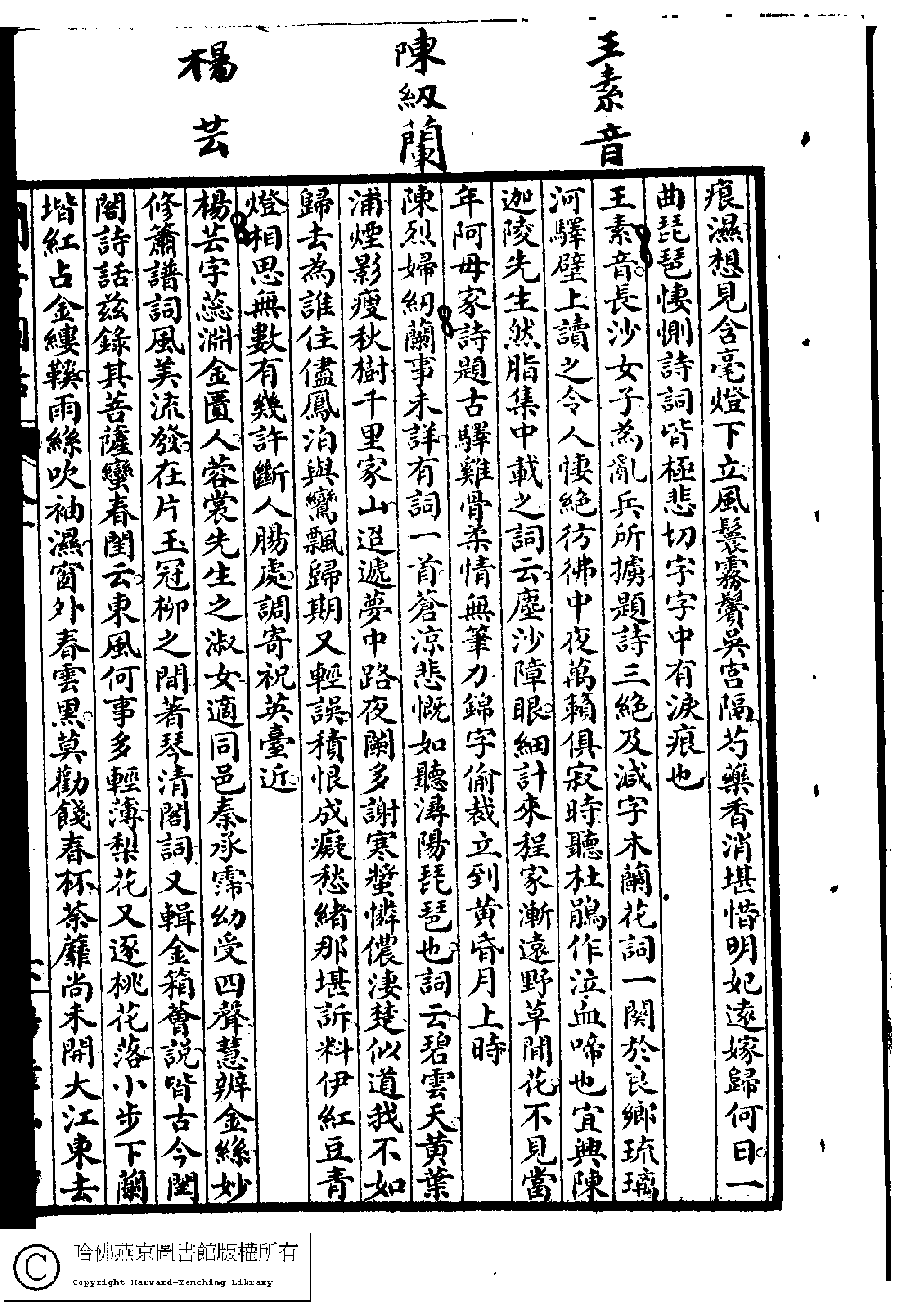 王素音
陳紉蘭
楊芸
痕濕想見含毫燈下立風鬟霧鬢吳宮隔芍藥香消堪惜明妃遠嫁歸何日一
曲琵琶悽惻詩詞皆極悲切字字中有淚痕也
王素音長沙女子為亂兵所擄題詩三絶及減字木蘭花詞一闋於良鄉琉璃
河驛壁上讀之令人悽絶彷彿中夜萬籟俱寂時聽杜鵑作泣血啼也宜興陳
迦陵先生然脂集中載之詞云塵沙障眼細計來程家漸遠野草閒花不見當
年阿母家詩題古驛雞骨柔情無筆力錦字偷裁立到黃昏月上時
陳烈婦紉蘭事未詳有詞一首蒼凉悲慨如聽潯陽琵琶也詞云碧雲天黃葉
浦煙影瘦秋樹千里家山迢遞夢中路夜闌多謝寒螿憐儂淒楚似道我不如
歸去為誰住儘鳳泊與鸞飄歸期又輕誤積恨成癡愁緒那堪訴料伊紅豆青
燈相思無數有幾許斷人腸處調寄祝英臺近
楊芸字蕊淵金匱人蓉裳先生之淑女適同邑秦承霈幼受四聲慧辨金絲妙
修簫譜詞風美流發在片玉冠柳之間著琴清閣詞又輯金箱薈說皆古今閨
閣詩話茲錄其菩薩蠻春閨云東風何事多輕薄梨花又逐桃花落小步下蘭
堦紅占金縷鞵雨絲吹袖濕窗外春雲黑莫勸餞春杯荼蘼尚未開大江東去
哈佛燕京圖書館版權所有
Copyright Harvard-Yenching Library